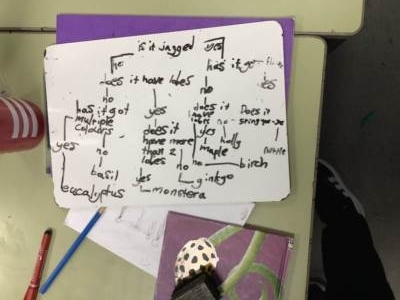 is it jagged yes
has it got
does it have lobes
no yes
no yes
has it got multiple colours
does it have more than 2 lobes
does it have
Does it
yes no
yes no
holly
maple
no birch
basil
yes no ginkgo
eucalyptus
monstera